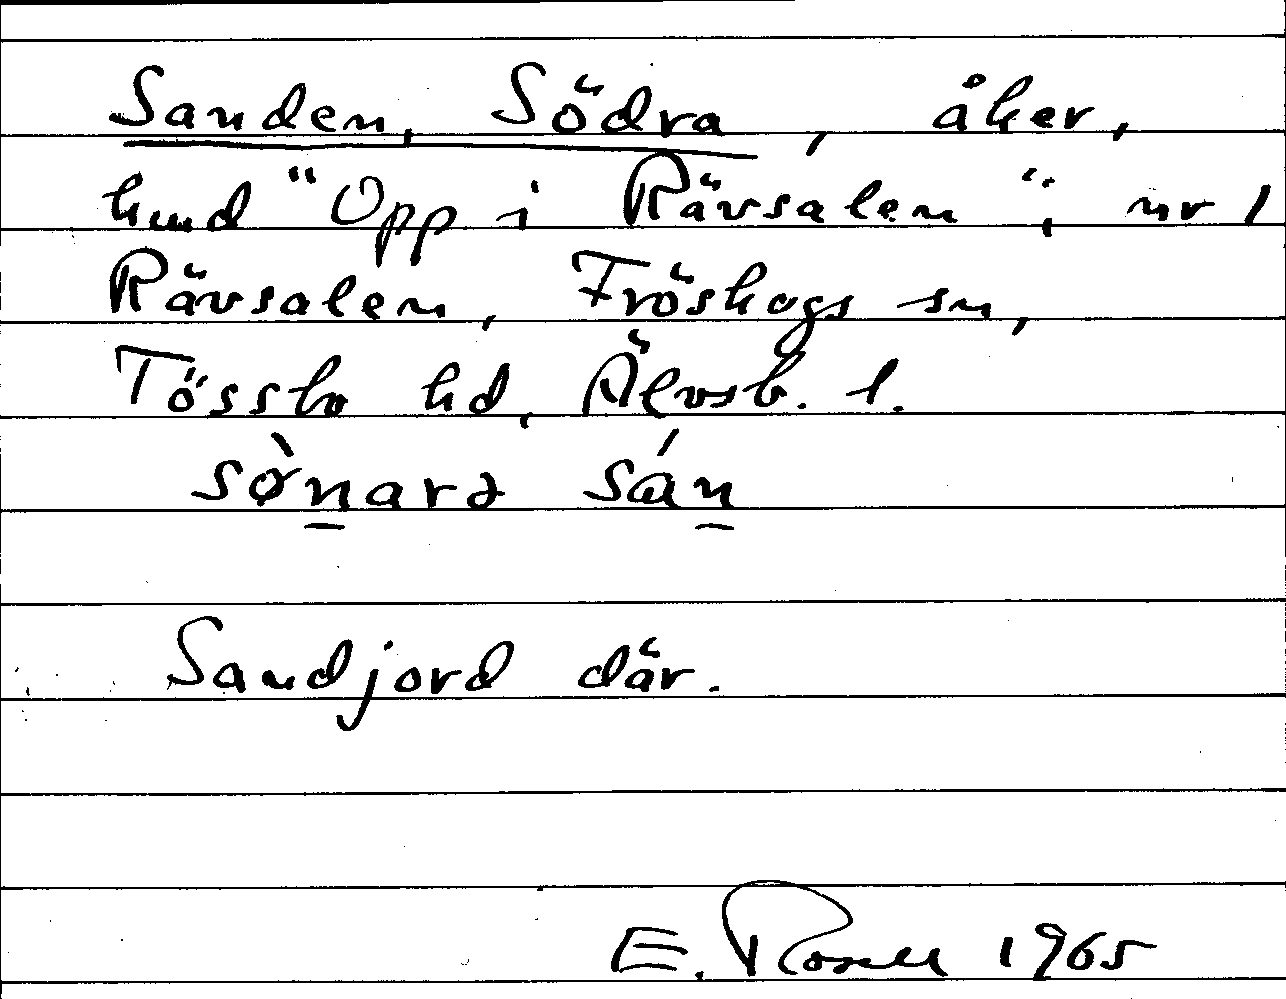 Sanden, Södra, åker,
hmd "Opp i Rävsalen", nr 1
Rävsalen, Fröskogs sn,
Tössbo hd, Älvsb. l.
sø̀n̲arə sán̲
Sandjord där.
E. Rosell 1965